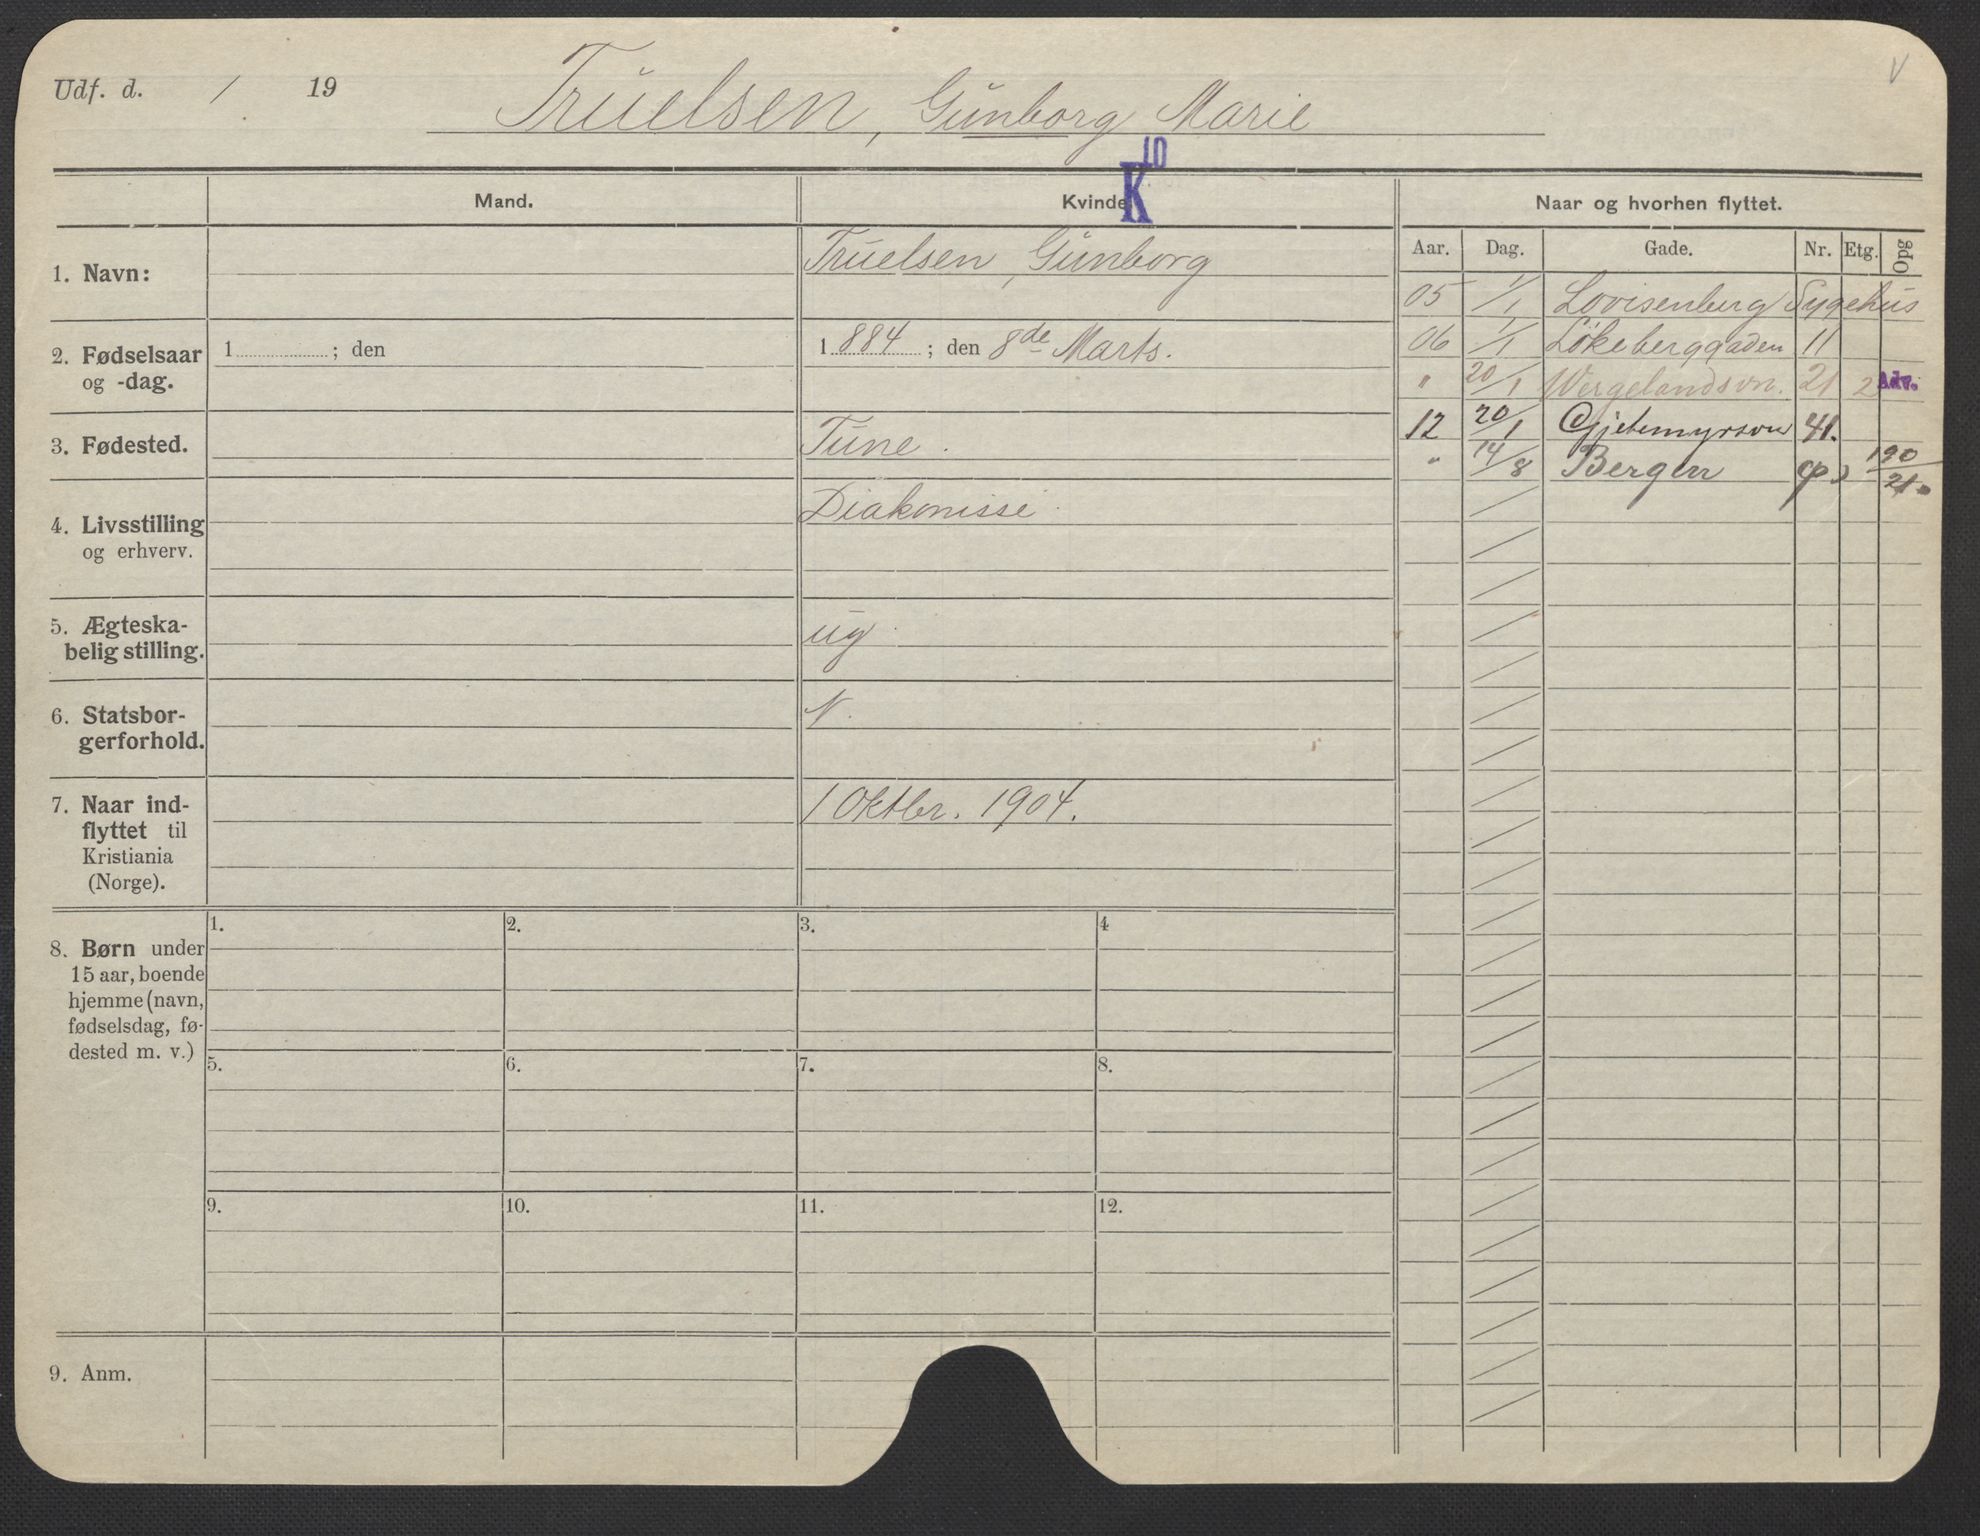 Udf. d. / 19
Truelsen, Gunborg Marie
V
10
K
Mand.
Kvinde.
Naar og hvorhen flyttet.
Aar. Dag. Gade. Nr. Etg. Opg
1. Navn:
Truelsen, Gunborg
2. Fødselsaar
og -dag.
1 ; den
1 884 ; den 8de Marts.
3. Fødested.
Tune.
4. Livsstilling
og erhverv.
Diakonisse
5. Ægteska-
belig stilling.
ug
6. Statsbor-
gerforhold.
N.
7. Naar ind-
flyttet til
Kristiania
(Norge).
1 Oktbr. 1904.
05 1/1 Lovisenberg Sygehus
06 1/1 Løkeberggaden 11
" 20/1 Wergelandsvn. 21 2 Adv.
12 20/1 Gjetemyrsvn 41.
" 14/8 Bergen 190/21
8. Børn under
15 aar, boende
hjemme (navn,
fødselsdag, fø-
dested m. v.)
1. 2. 3. 4
5. 6. 7. 8.
9. 10. 11. 12.
9. Anm.